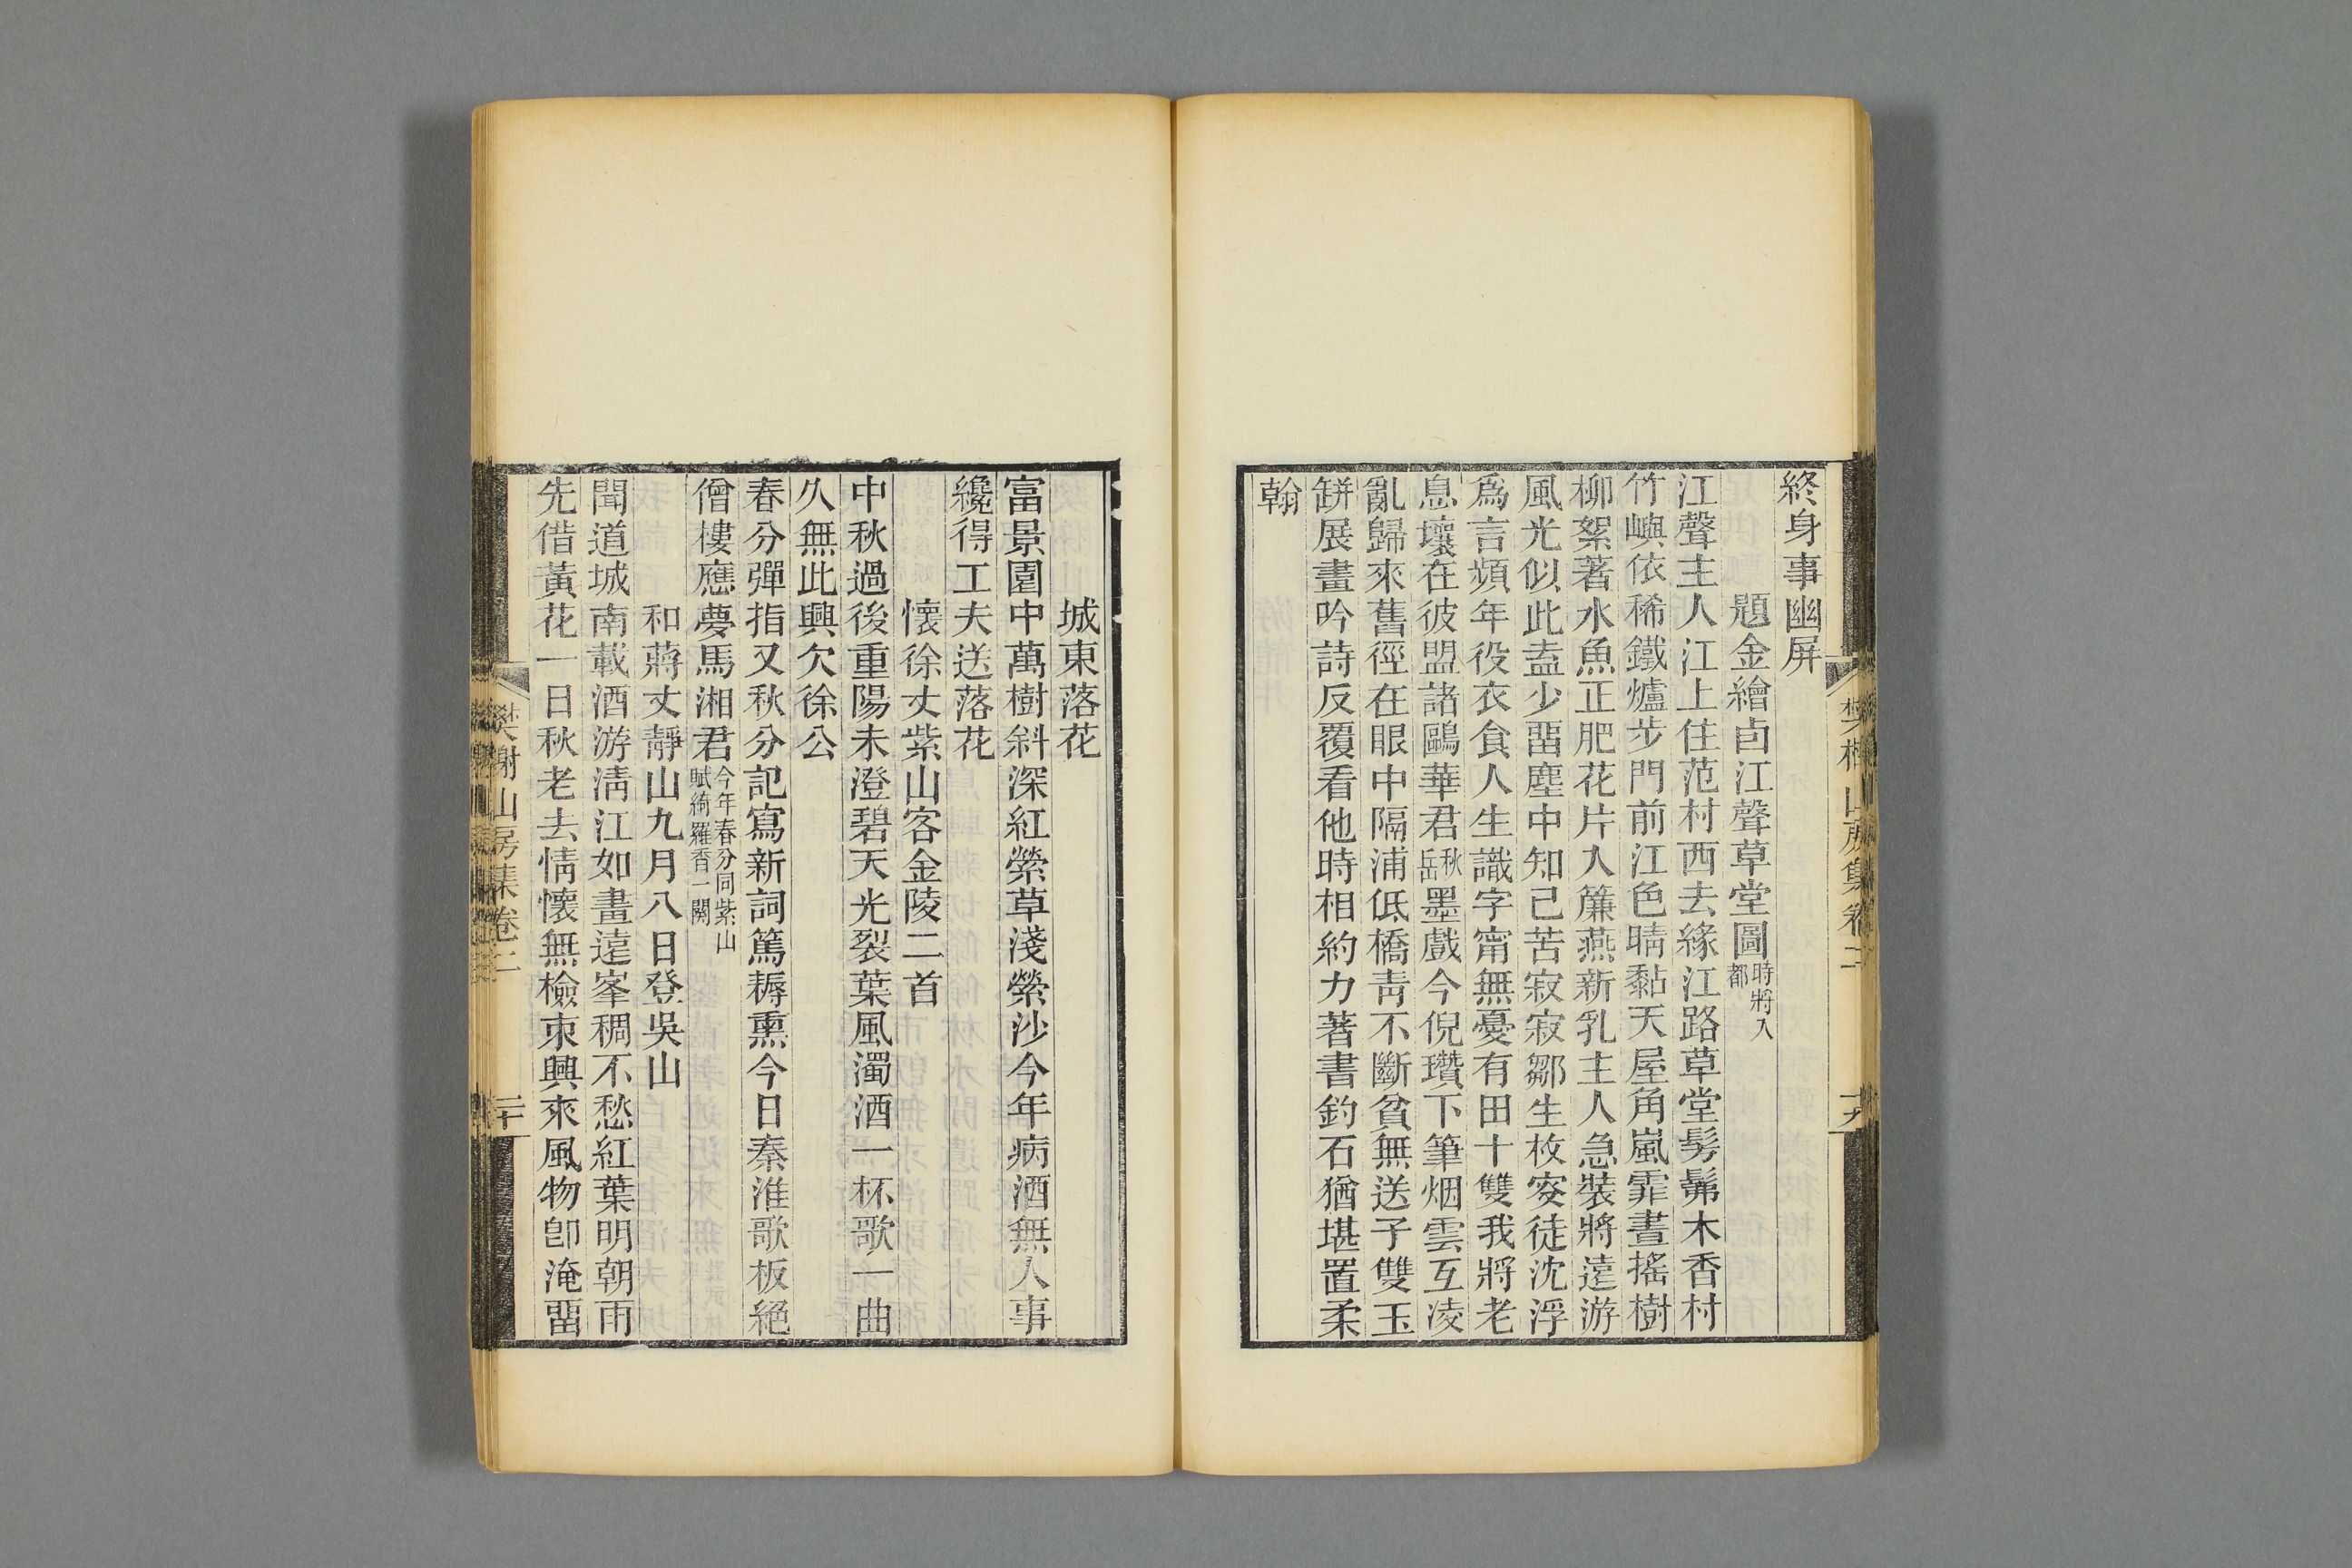 終身事幽屏
題金繪卣江聲草堂圖時將入都
江聲主人江上住范村西去緣江路草堂髣髴木香村
竹嶼依稀鐵爐步門前江色晴黏天屋角嵐霏晝搖樹
柳絮著水魚正肥花片入簾燕新乳主人急裝將遠游
風光似此盍少畱塵中知己苦寂寂鄒生枚叟徒沈浮
爲言頻年役衣食人生識字甯無憂有田十雙我將老
息壤在彼盟諸鷗華君秋岳墨戲今倪瓚下筆烟雲互凌
亂歸來舊徑在眼中隔浦低橋靑不斷貧無送子雙玉
缾展畫吟詩反覆看他時相約力著書釣石猶堪置柔
翰
樊榭山房集卷二
十九
城東落花
富景園中萬樹斜深紅縈草淺縈沙今年病酒無人事
纔得工夫送落花
懷徐丈紫山客金陵二首
中秋過後重陽未澄碧天光裂葉風濁酒一杯歌一曲
久無此興欠徐公
春分彈指又秋分記寫新詞篤耨熏今日秦淮歌板絕
僧樓應夢馬湘君今年春分同紫山賦綺羅香一闋
和蔣丈靜山九月八日登吳山
聞道城南載酒游淸江如畫遠峯稠不愁紅葉明朝雨
先借黃花一日秋老去情懷無檢束興來風物卽淹畱
樊榭山房集卷二
二十